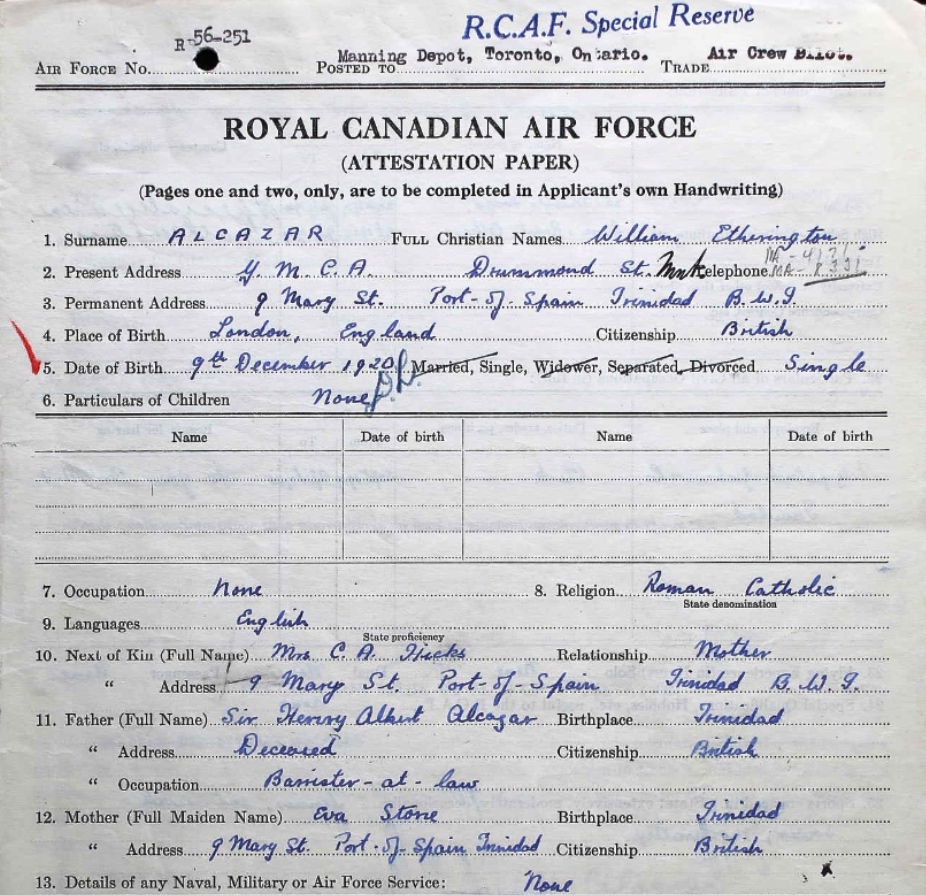 R.C.A.F. Special Reserve
R-56-251
Manning Depot, Toronto, Ontario. Air Crew Pilot.
AIR FORCE NO. POSTED TO TRADE
ROYAL CANADIAN AIR FORCE
(ATTESTATION PAPER)
(Pages one and two, only, are to be completed in Applicant's own Handwriting)
1. Surname ALCAZAR FULL Christian Names William Etherington
2. Present Address Y.M.C.A. Drummond St. Telephone
3. Permanent Address 9 Mary St. Port-of-Spain Trinidad B.W.I.
4. Place of Birth London, England Citizenship British
5. Date of Birth 9th December 1920 Married, Single, Widower, Separated, Divorced Single
6. Particulars of Children None
Name Date of birth Name Date of birth
7. Occupation None 8. Religion Roman Catholic
State denomination
9. Languages English
State proficiency
10. Next of Kin (Full Name) Mrs C. A. Hicks Relationship Mother
" Address 9 Mary St. Port-of-Spain Trinidad B.W.I.
11. Father (Full Name) Sir Henry Albert Alcazar Birthplace Trinidad
" Address Deceased Citizenship British
" Occupation Barrister-at-law
12. Mother (Full Maiden Name) Eva Stone Birthplace Trinidad
" Address 9 Mary St. Port-of-Spain Trinidad Citizenship British
13. Details of any Naval, Military or Air Force Service: None